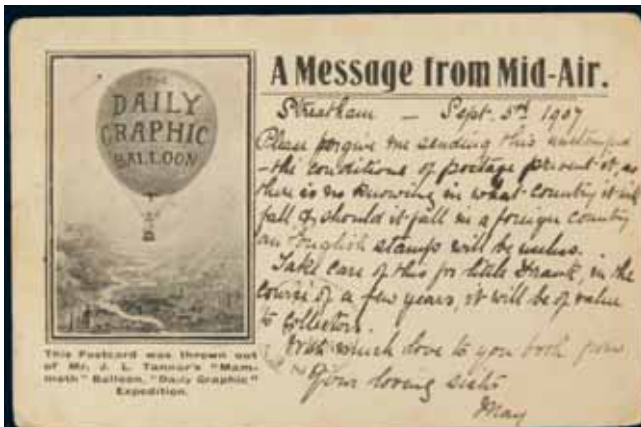 THE
DAILY
GRAPHIC
BALLOON
This Postcard was thrown out
of Mr. J. L. Tanner's "Mam-
moth" Balloon, "Daily Graphic"
Expedition.
A Message from Mid-Air.
Streatham — Sept. 5th 1907
Please forgive me sending this unstamped
- the conditions of postage prevent it, as
there is no knowing in what country it will
fall & should it fall in a foreign country
an English stamps will be useless.
Take care of this for little Frank, in the
course of a few years, it will be of value
to collectors.
With much love to you both from
Your loving sister
May